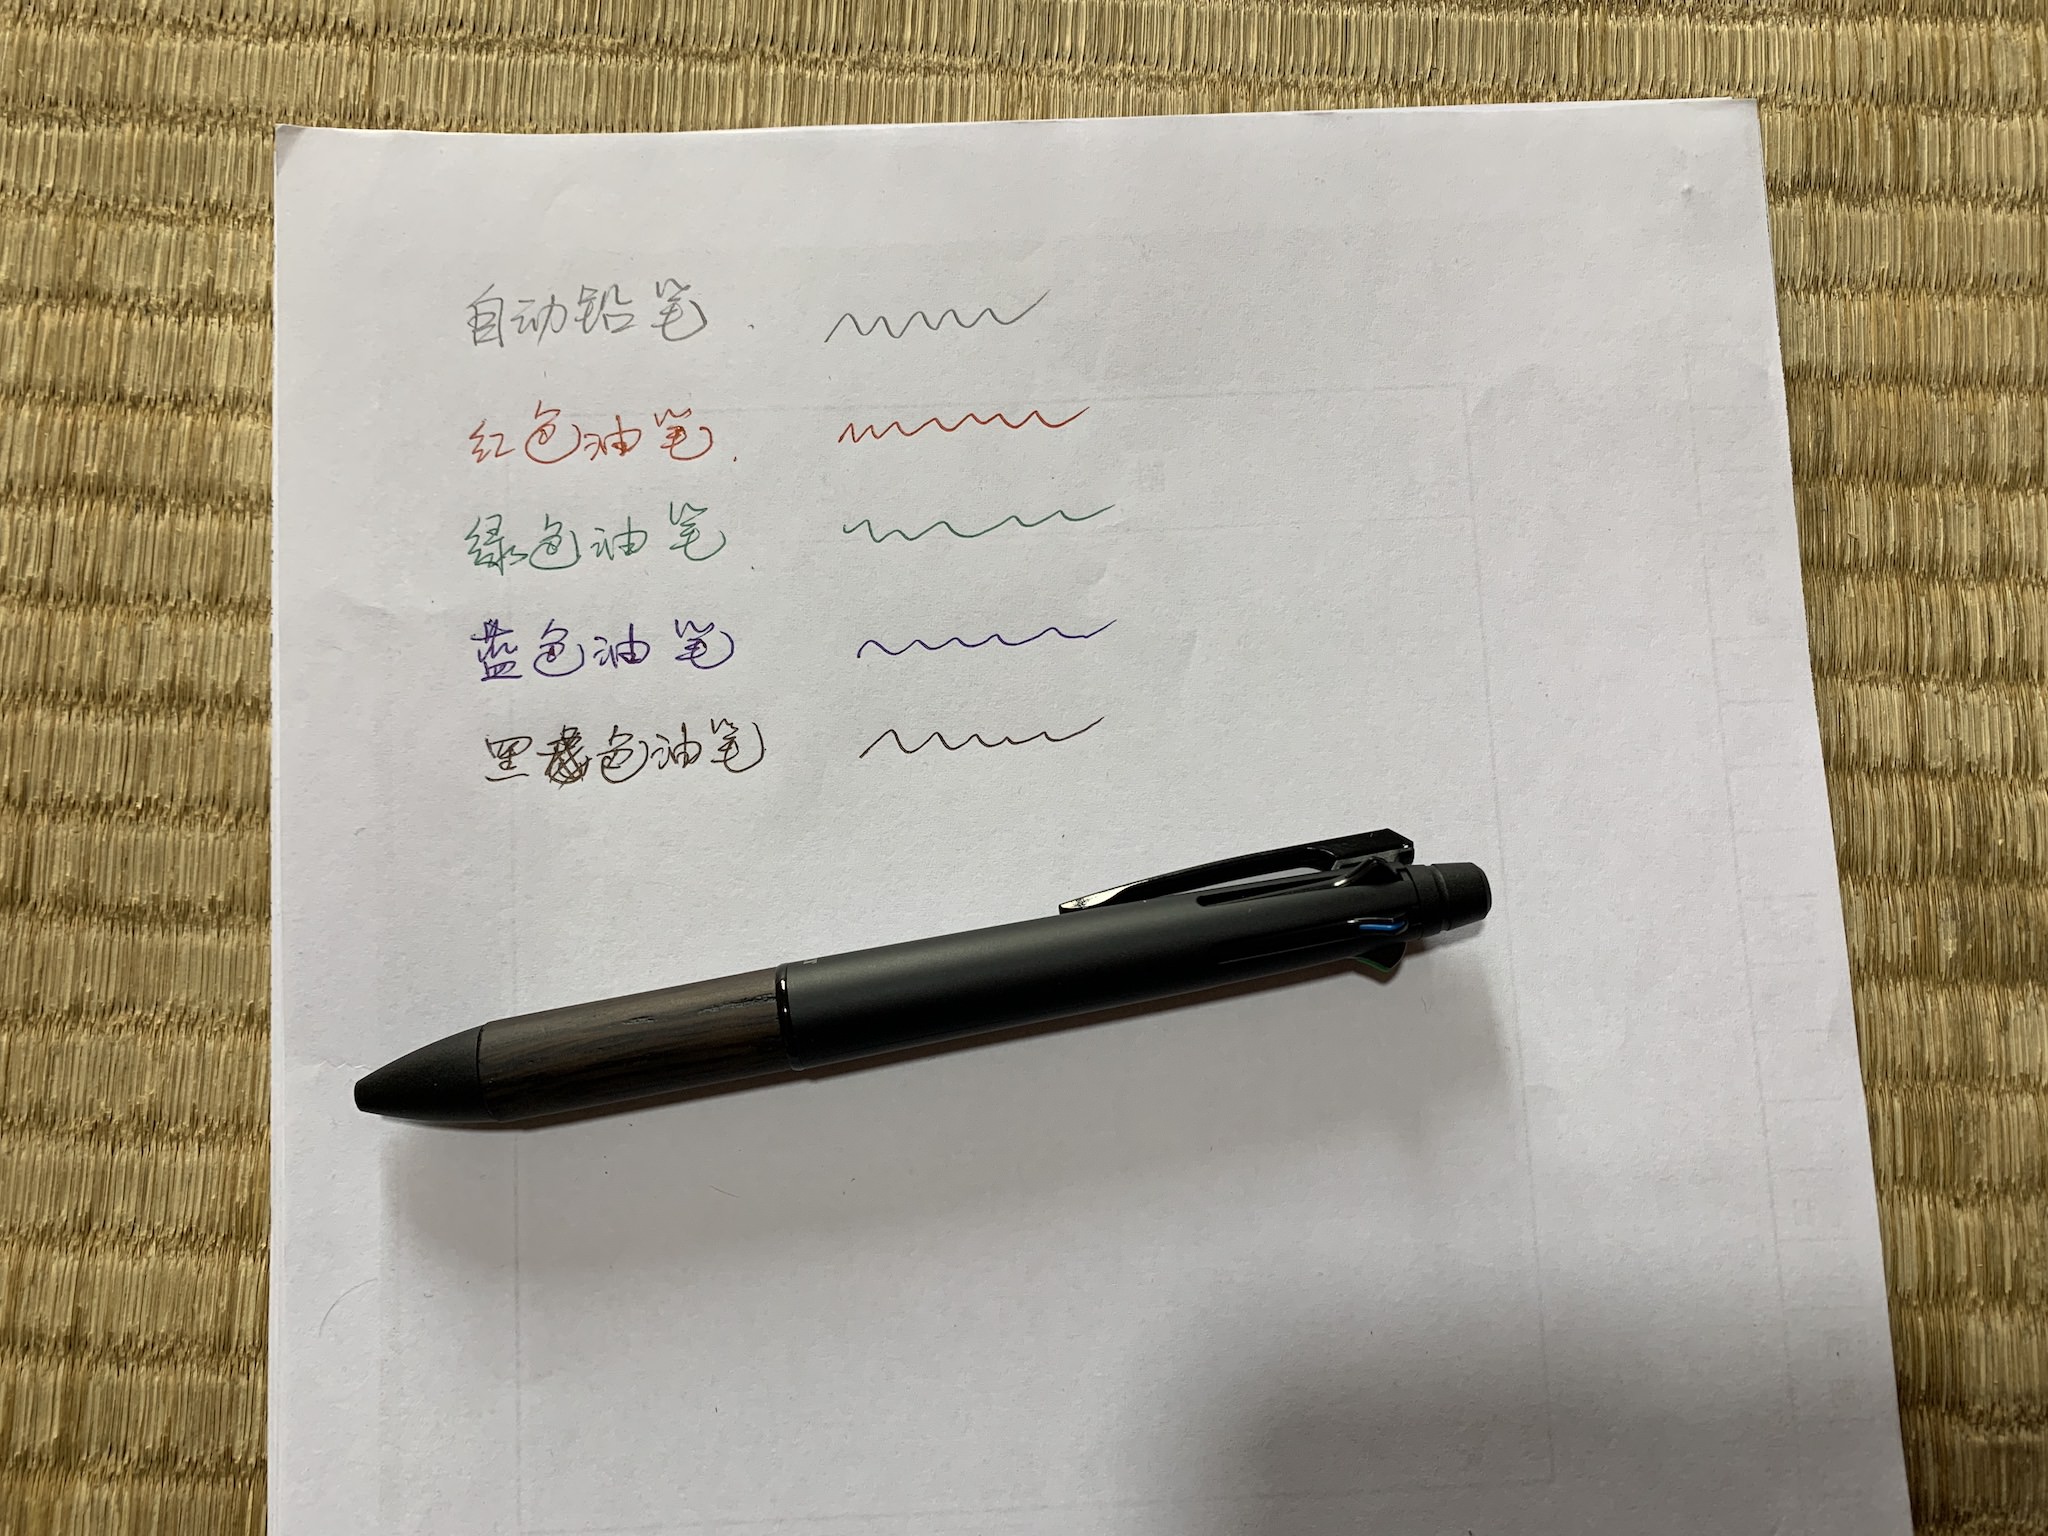 自动铅笔.
红色油笔.
绿色油笔.
蓝色油笔
黑色油笔